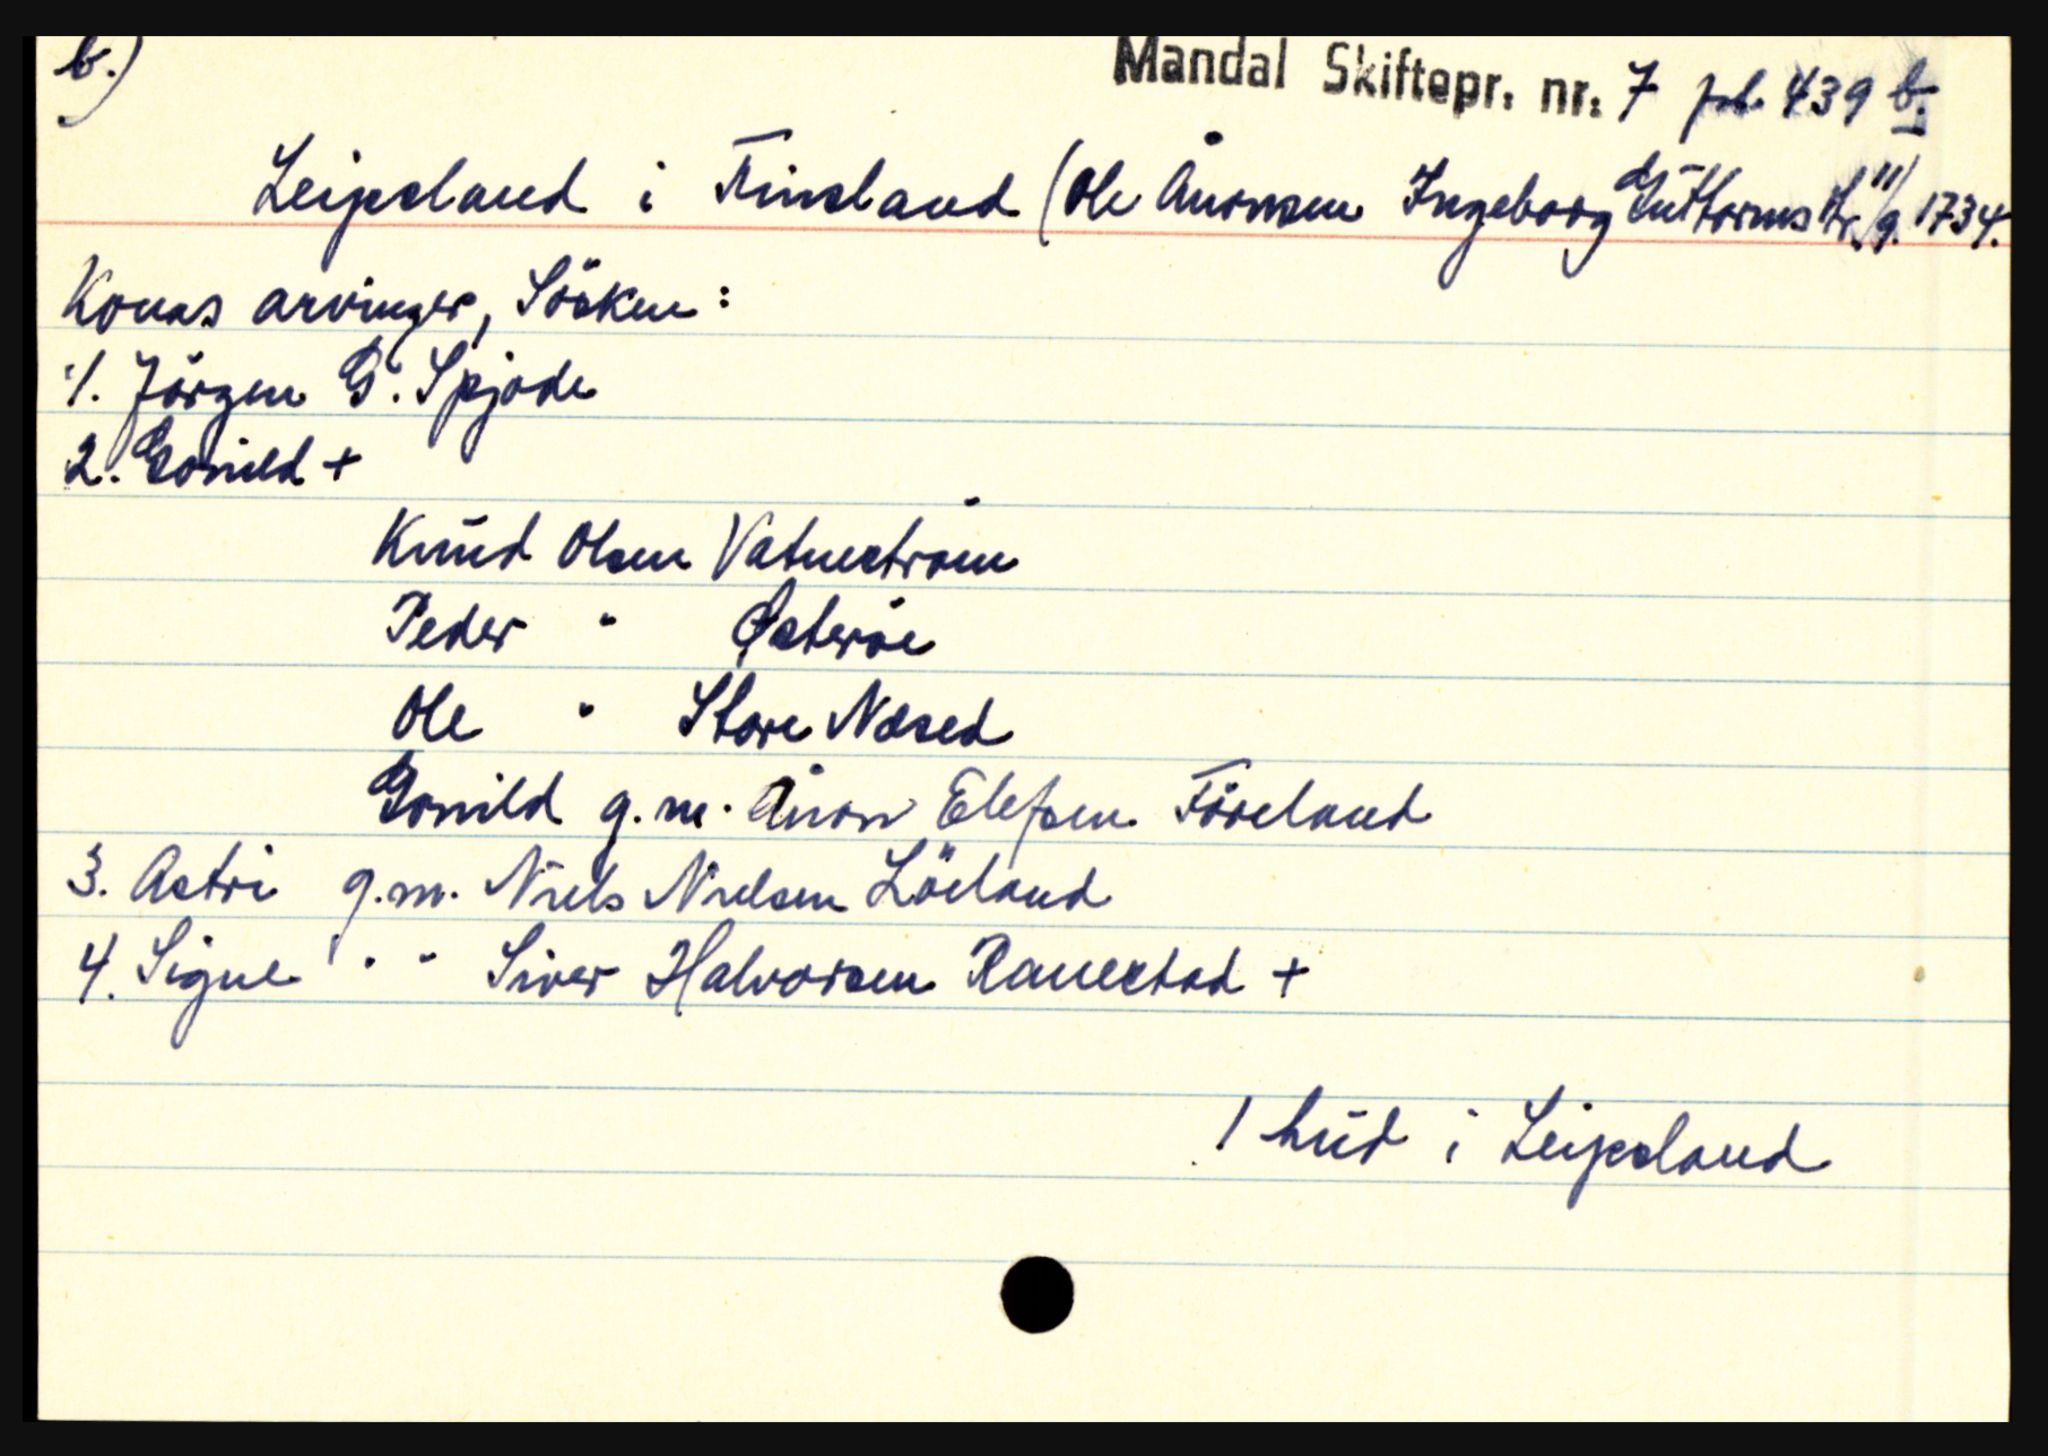 b.)
Mandal Skiftepr. nr. 7 pb. 439 b.
Leipsland i Finsland (Ole Ånonsen Ingeborg Guttormsdtr. 11/9. 1734.
Konas arvinger, Søsken:
1. Jörgen G. Spjode
2. Gonild +
Knud Olsen Vatnestrøm
Peder " Østerøe
Ole " Store Nøsed
Gonild g.m. Ånon Elefsen Föreland
3. Astri g.m. Niels Nielsen Löland
4. Signe " " Siver Halvorsen Rauestad +
1 hud i Leipsland